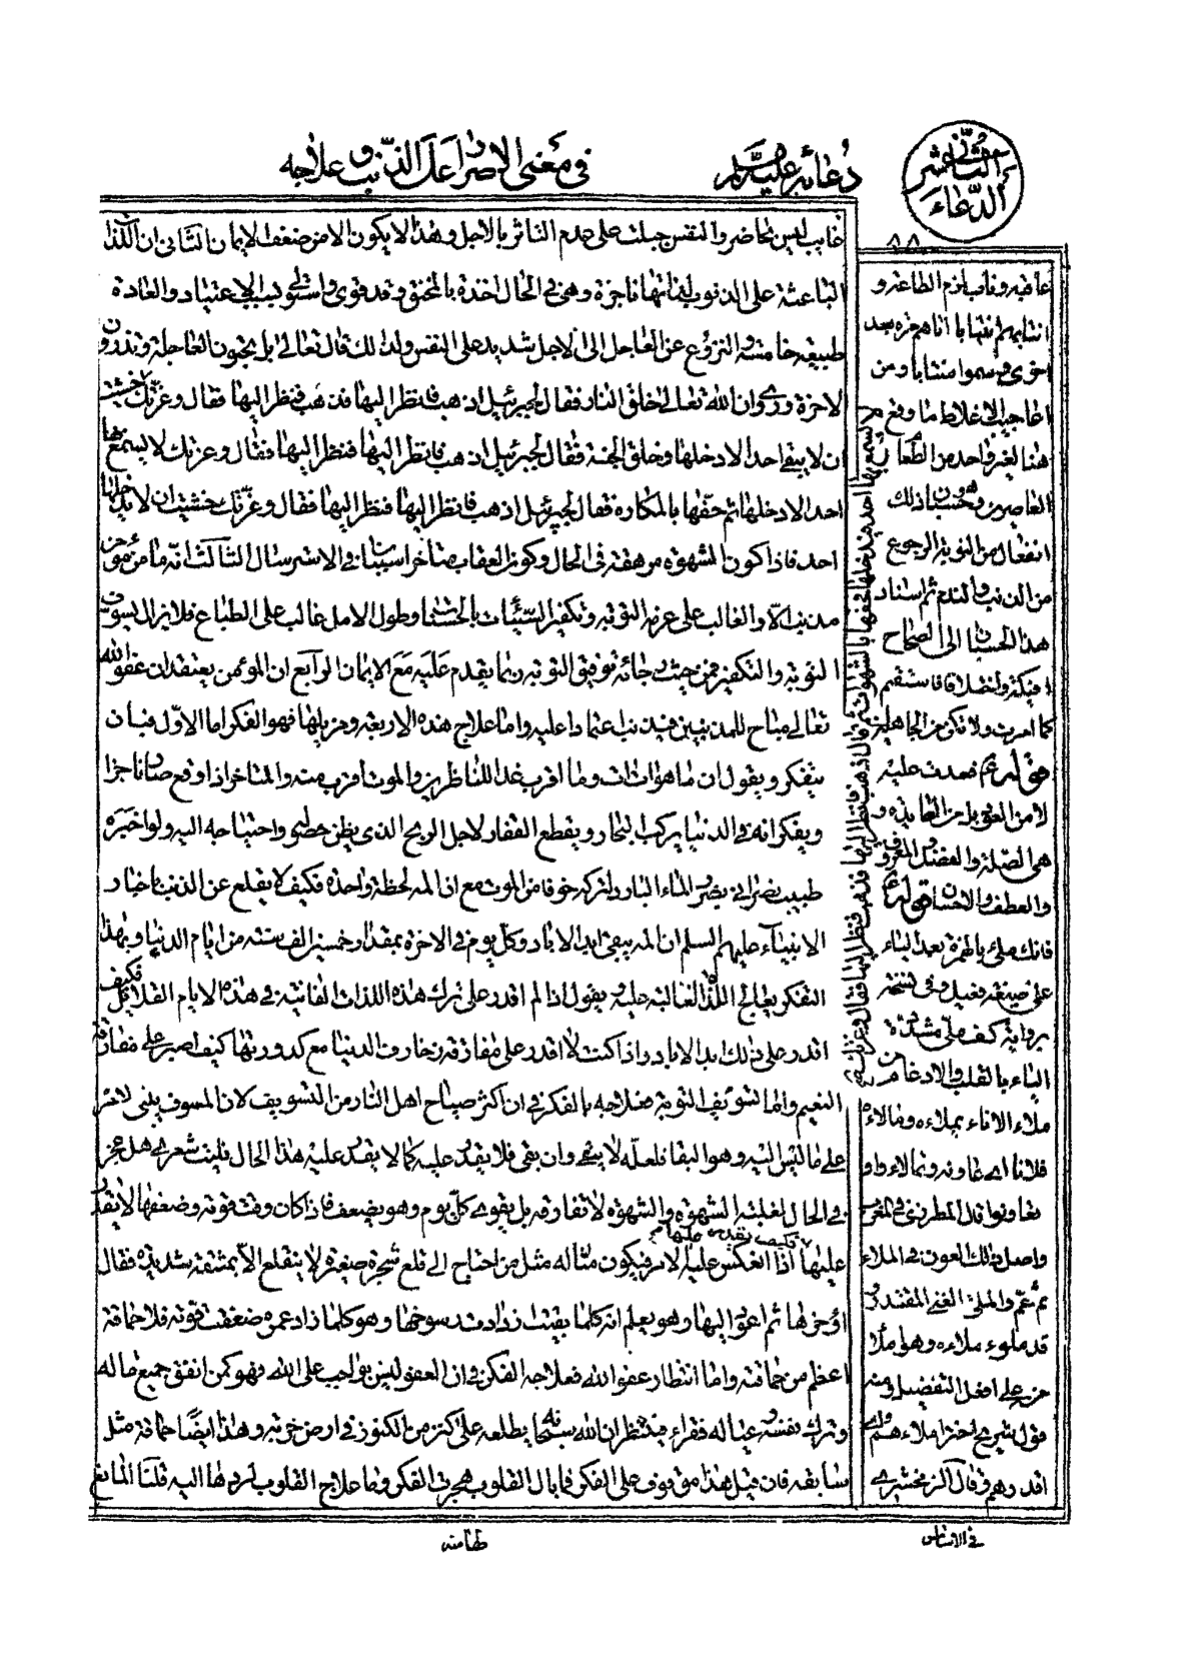 الدعاء الثاني عشر
دعائه عليه السلم
في معنى الاصرار على الذنب وعلاجه
غايب ليس بحاضر والنفس جبلت على عدم التاثر بالاجل وهذا لا يكون الا من ضعف الايمان الثاني ان اللذات
الباعثة على الذنوب لذاتها ناجزة وهي في الحال اخذة بالمخنق وقد قوى واستولى بسبب الاعتياد والعادة
طبيعة خامسة والنزوع عن العاجل الى الاجل شديد على النفس ولذلك قال تعالى بل يحبون العاجلة ويذرون
الاخرة وروي ان الله تعالى خلق النار فقال لجبرئيل اذهب فانظر اليها فذهب فنظر اليها فقال وعزتك خشيت
ان لا يبقى احد الا دخلها وخلق الجنة فقال لجبرئيل اذهب فانظر اليها فنظر اليها فقال وعزتك لا يسمع بها
احد الا دخلها ثم حفها بالمكاره فقال لجبرئيل اذهب فانظر اليها فنظر اليها فقال وعزتك خشيت ان لا يدخلها
احد فاذا كون الشهوة مرهقة في الحال وكون العقاب متاخرا سببان في الاسترسال الثالث انه ما من مؤمن
مذنب الا والغالب على عزمه التوبة وتكفير السيئات بالحسنات وطول الامل غالب على الطباع فلا يزال يسوف
التوبة والتكفير فمن حيث رجائه توفيق التوبة ربما يقدم عليه مع الايمان الرابع ان المؤمن يعتقد ان عفو الله
تعالى مباح للمذنبين فيذنب اعتمادا عليه واما علاج هذه الاربعة ومزيلها فهو الفكر اما الاول فبان
يتفكر ويقول ان ما هوات ات وما اقرب غدا للناظرين والموت اقرب منه والمتاخر اذا وقع صار ناجزا
ويفكر انه في الدنيا يركب البحار ويقطع القفار لاجل الربح الذي يظن حصوله واحتياجه اليه ولو اخبره
طبيب نصراني بضرر الماء البارد لتركه خوفا من الموت مع ان المه لحظة واحدة فكيف لا يقلع عن الذنب باخبار
الانبياء عليهم السلم ان المه يبقى ابد الاباد وكل يوم في الاخرة بمقدار خمسين الف سنة من ايام الدنيا وبهذا
التفكر يعالج اللذة الغالبة عليه ويقول اذا لم اقدر على ترك هذه اللذات الفانية في هذه الايام القلائل فكيف
اقدر على ذلك ابد الاباد واذا كنت لا اقدر على مفارقة زخارف الدنيا مع كدورتها كيف اصبر على مفارقة
النعيم واما تسويف التوبة فعلاجه بالفكر في ان اكثر صياح اهل النار من التسويف لان المسوف يبني الامر
على ما ليس اليه وهو البقا فلعله لا يبقى وان بقى فلا يقدر عليه كما لا يقدر عليه هذا الحال فليت شعري هل عجز
في الحال لغلبة الشهوة والشهوة لا تفارقه بل يقوى كل يوم وهو يضعف فاذا كان وقت قوته وضعفها لا يقدر
فكيف يقدر عليها
عليها اذا انعكس عليه الامر فيكون مثاله مثل من احتاج الى قلع شجرة صغيرة لا ينقلع الا بمشقة شديدة فقال
اؤخرها ثم اعود اليها وهو يعلم انه كلما بقيت زادت رسوخها وهو كلما زاد عمره ضعفت قوته فلا حماقة
اعظم من حماقته واما انتظار عفو الله فعلاجه الفكر في ان العفو ليس بواجب على الله فهو كمن انفق جميع ماله
وترك نفسه وعياله فقراء فينتظر ان الله سبحانه يطلعه على كنز من الكنوز في ارض خربة وهذا ايضا حماقة مثل
سابقه فان قيل هذا موقوف على الفكر فما بال القلوب هجرت الفكر وما علاج القلوب لردها اليه قلنا المانع
لا يسمع بها احد فيدخلها فحفها بالشهوات ثم قال اذهب فانظر اليها فذهب فنظر اليها فقال وعزتك
انتابهم انتيابا اتاهم مرة بعد
اخرى
اعاجيب الاغلاط ما وقع
هنا لغير واحد من
المعاصرين وهو حسبان ذلك
انفعال من التوبة الرجوع
من الذنب والندم ثم اسناد
هذا الحسبان الى الصحاح
كما امرت ولا تكن من الجاهلين
قوله ع فعدت عليه
هي الصلة والفضل والمعروف
والعطف والاحسان قوله ع
فانك ملئ بالهمزة بعد الياء
على صيغة فعيل وفي نسخة
برواية كف ملي مشددة
الياء بالقلب والادغام من
فلانا اي عاونه وتمالاءوا
تعاونوا قال المطرزي في المغرب
واصل ذلك العون في الملاء
ثم عم والملئ الغني المقتدر
على افعل التفضيل ومنه
قول شريح اختر املاءهم اي
اقدرهم وقال الزمخشري
في الاساس